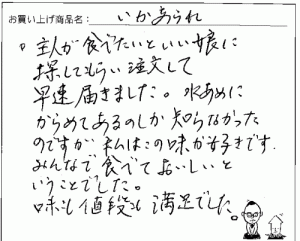 お買い上げ商品名： いかあられ
主人が食べたいといい娘に
探してもらい注文して
早速届きました。水あめに
からめてあるのしか知らなかった
のですが私はこの味が好きです.
みんなで食べておいしいと
いうことでした。
味も値段も満足でした。